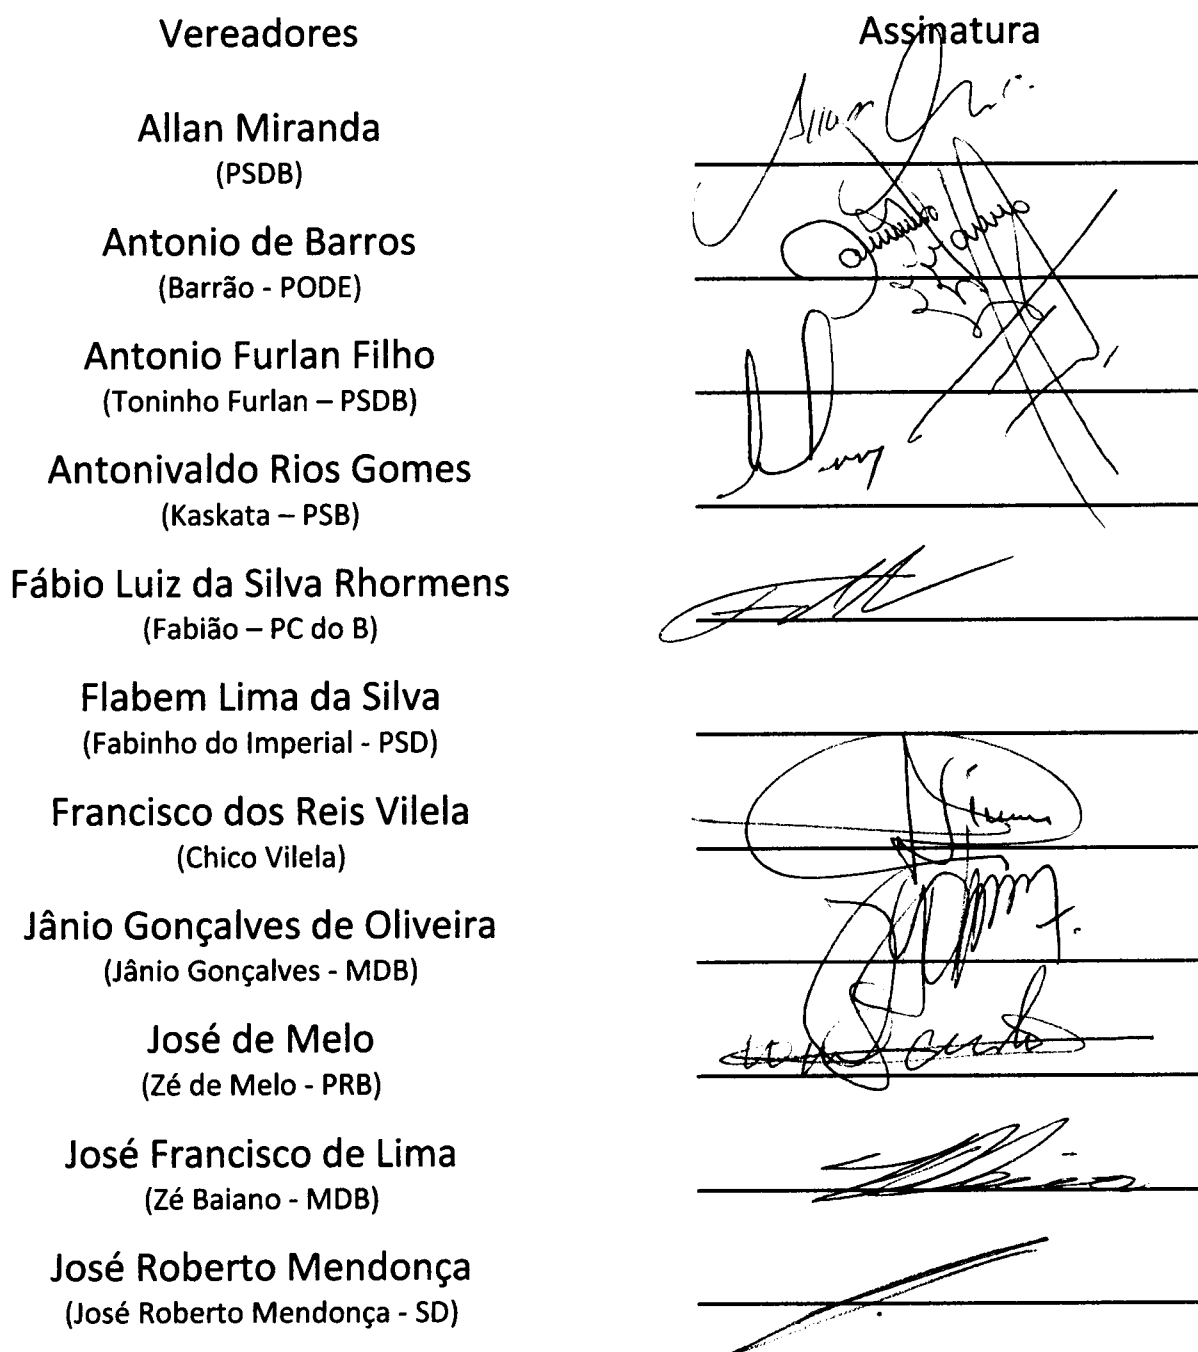 Vereadores Assinatura
Allan Miranda
(PSDB)
Antonio de Barros
(Barrão - PODE)
Antonio Furlan Filho
(Toninho Furlan – PSDB)
Antonivaldo Rios Gomes
(Kaskata – PSB)
Fábio Luiz da Silva Rhormens
(Fabião – PC do B)
Flabem Lima da Silva
(Fabinho do Imperial - PSD)
Francisco dos Reis Vilela
(Chico Vilela)
Jânio Gonçalves de Oliveira
(Jânio Gonçalves - MDB)
José de Melo
(Zé de Melo - PRB)
José Francisco de Lima
(Zé Baiano - MDB)
José Roberto Mendonça
(José Roberto Mendonça - SD)